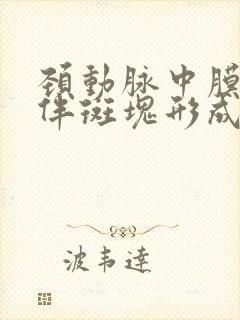 頚動脉中膜
伴斑塊形成
波韦達